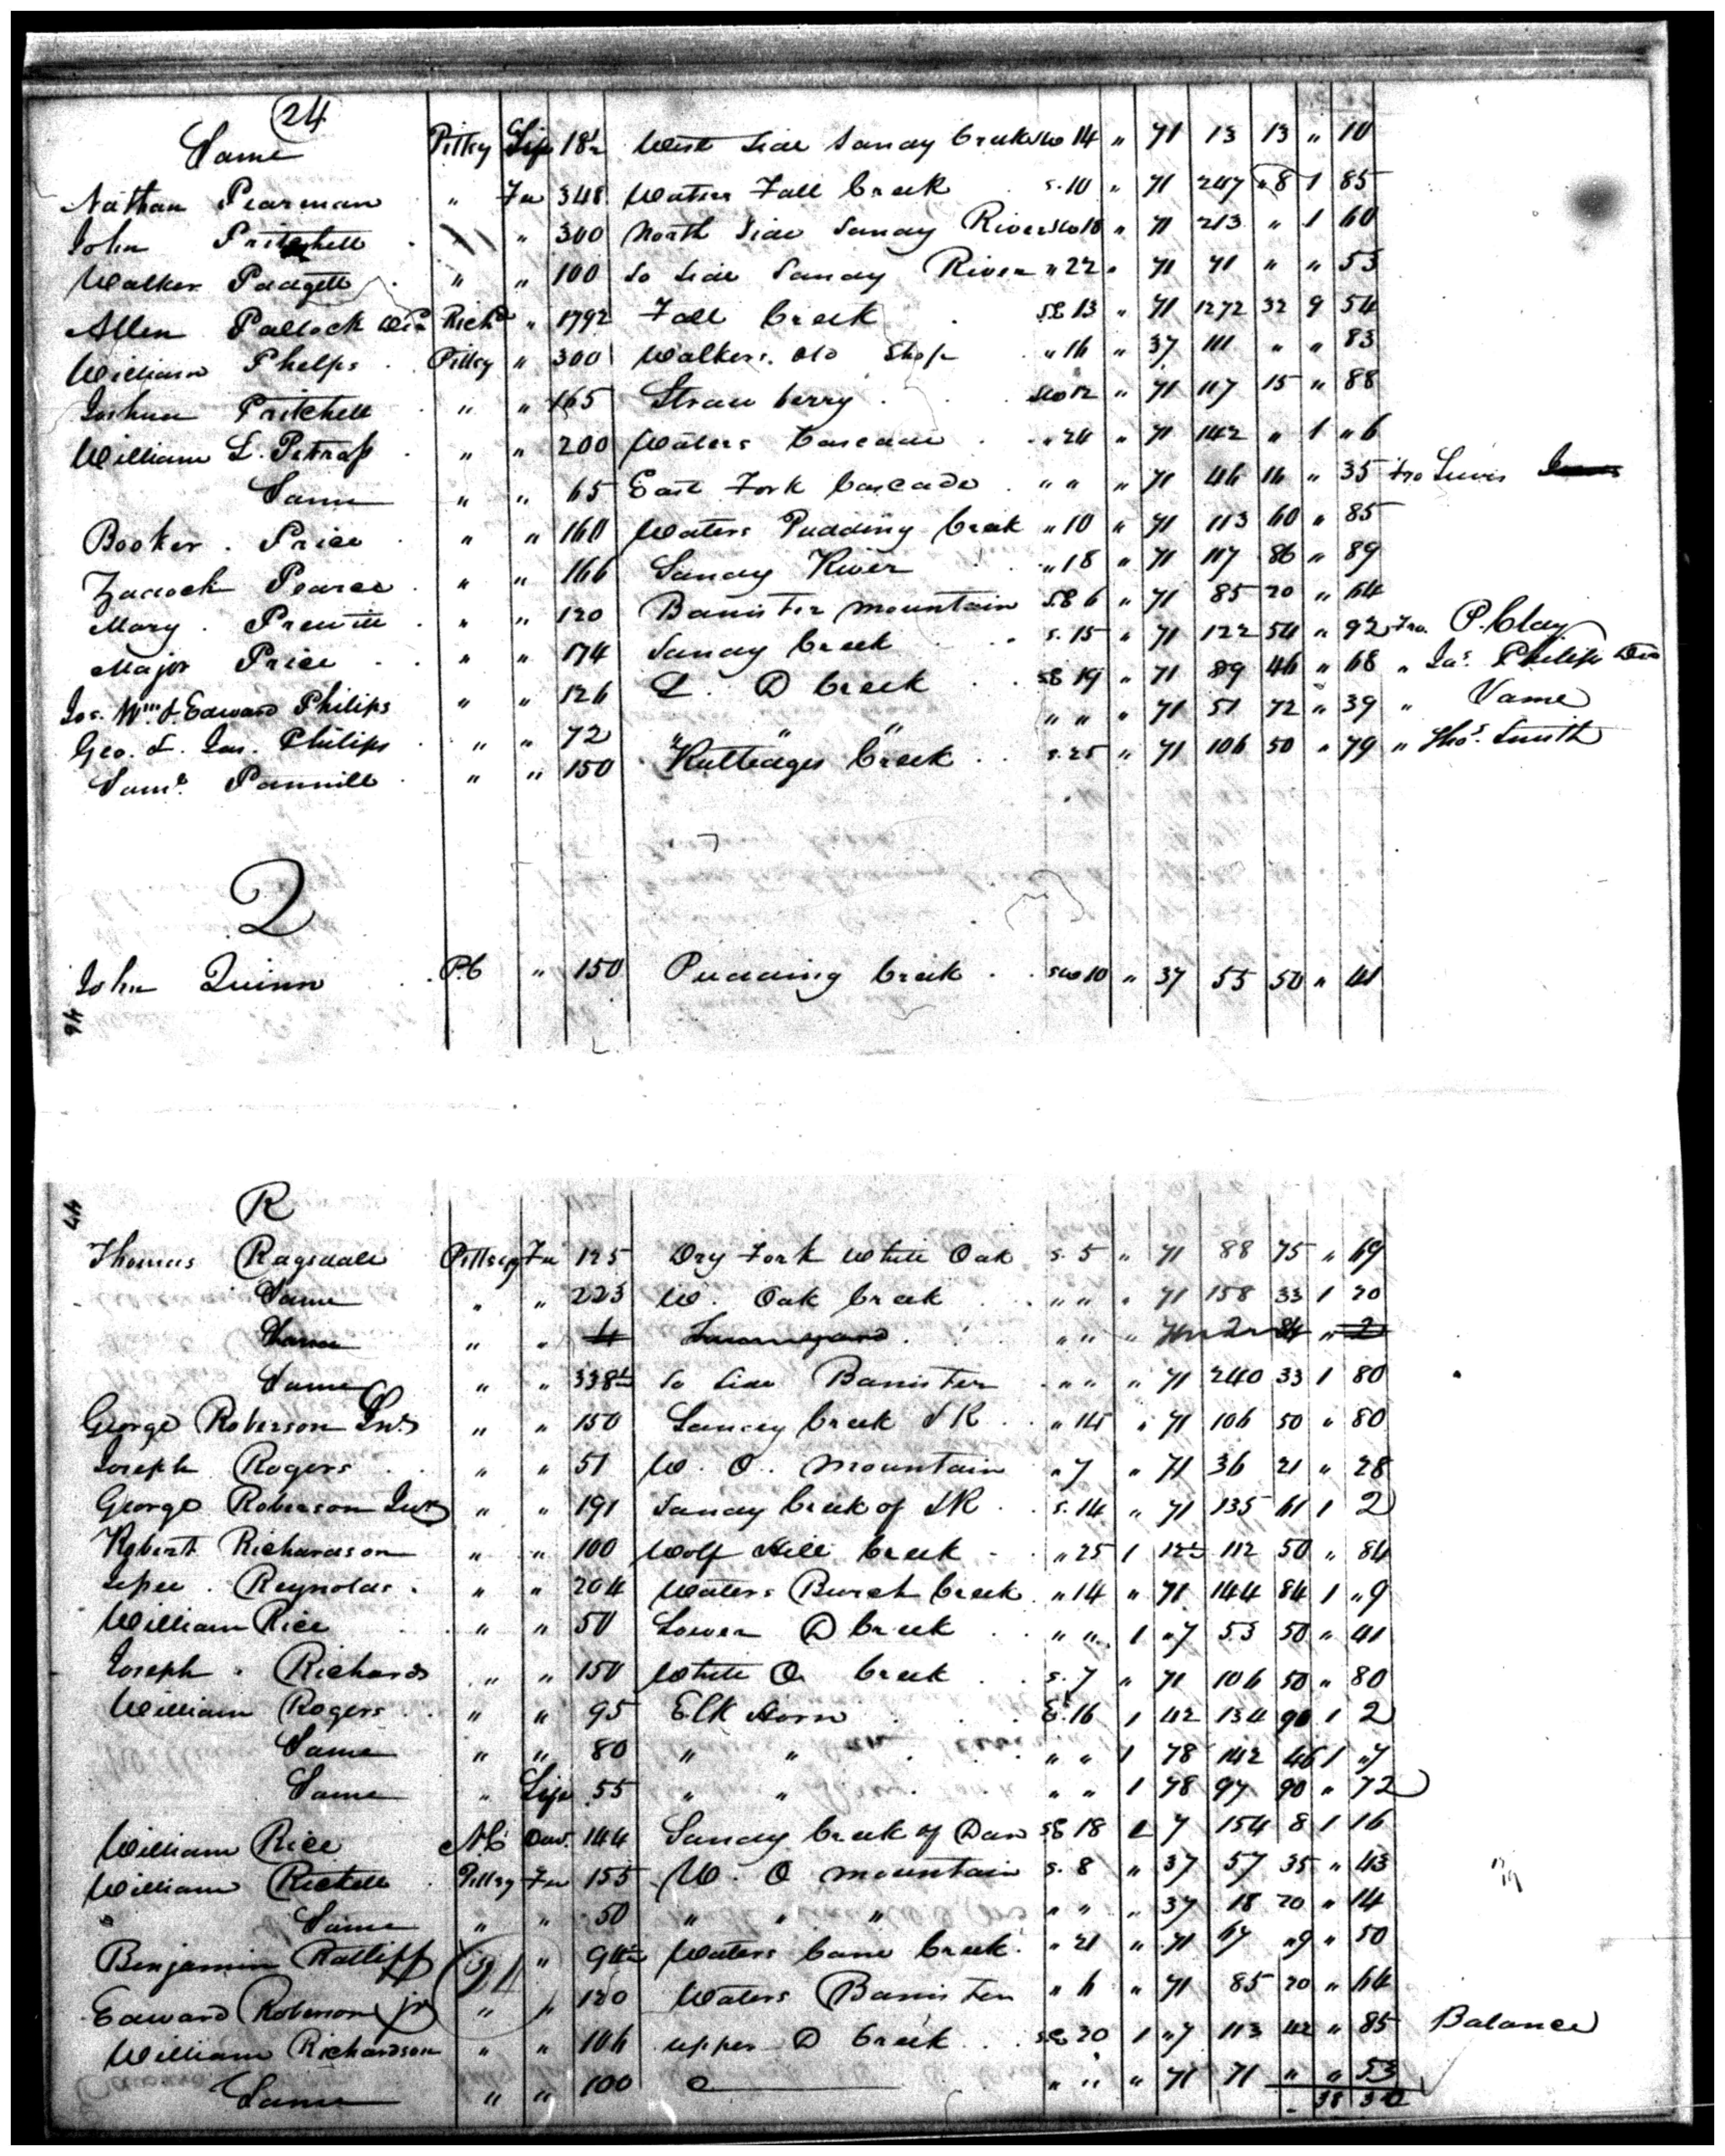 24
Same Pittsy Life 18½ West Side Sandy Creek SW 14 " 71 13 13 " 10
Nathan Pearman " Fee 348 Waters Fall Creek S. 10 " 71 247 "8 1 85
John Pritchett " " 300 North Side Sandy River SW 10 " 71 213 " 1 60
Walker Padgett " " 100 So Side Sandy River " 22 " 71 71 " " 53
Allen Pallock Richd " 1792 Fall Creek SE 13 " 71 1272 32 9 54
William Phelps Pittsy " 300 Walkers Old Shop " 16 " 37 111 " " 83
Joshua Pritchett " " 165 Straw berry SW 12 " 71 117 15 " 88
William L. " " 200 Waters Cascade " 24 " 71 142 " 1 " 6
Same " " 65 East Fork Cascade " " " 71 46 16 " 35 fro Lewis
Booker Price " " 160 Waters Pudding Creek " 10 " 71 113 60 " 85
Pearce " " 166 Sandy River " 18 " 71 117 86 " 89
Mary Prewitt " " 120 Banister Mountain SE 6 " 71 85 20 " 64
Major Price " " 174 Sandy Creek S. 15 " 71 122 54 " 92 fro. P. Clay
Jos. Wm. & Edward Philips " " 126 L. D Creek SE 19 " 71 89 46 " 68 " Jas. Philips
Geo. & Jas. Philips " " 72 " " " " " " 71 51 72 " 39 " Same
Saml. Pannill " " 150 Rutledges Creek S. 25 " 71 106 50 " 79 " Thos. Smith
Q
John Quinn P.C " 150 Pudding Creek SW 10 " 37 55 50 " 41
46
47
R
Thomas Ragsdale Pittsy Fee 125 Dry Fork White Oak S. 5 " 71 88 75 " 69
Same " " 223 W. Oak Creek " " " 71 158 33 1 20
Same " " 4 " " " 2 84 " 2
Same " " 338½ So Side Banister " " " 71 240 33 1 80
George Roberson Snr " " 150 Sandy Creek S R " 14 " 71 106 50 " 80
Joseph Rogers " " 51 W. O. Mountain " 7 " 71 36 21 " 28
George Roberson Jur " " 191 Sandy Creek of S R S. 14 " 71 135 61 1 2
Robert Richardson " " 100 Wolf Hill Creek " 25 1 12½ 112 50 " 84
Jesse Reynolds " " 204 Waters Burch Creek " 14 " 71 144 84 1 " 9
William Rice " " 50 Lower D Creek " " 1 " 7 53 50 " 41
Joseph Richards " " 150 White O Creek S. 7 " 71 106 50 " 80
William Rogers " " 95 Elk Horn E. 16 1 42 134 90 1 2
Same " " 80 " " " " 1 78 142 46 1 " 7
Same " Life 55 " " " " 1 78 97 90 " 72
William Rice N.C Dow. 144 Sandy Creek of Dan SE 18 1 7 154 8 1 16
William Rickett Pittsy Fee 155 W. O Mountain S. 8 " 37 57 35 " 43
Same " " 50 " " " " " " 37 18 20 " 14
Benjamin Ratliff " 94½ Waters Cane Creek " 21 " 71 67 " 9 " 50
24
Edward Roberson jr " " 120 Waters Banister " 6 " 71 85 20 " 64
William Richardson " " 106 Upper D Creek SE 20 1 " 7 113 42 " 85 Balance
Same " " 100 " " " 71 71 " " 53
38 30